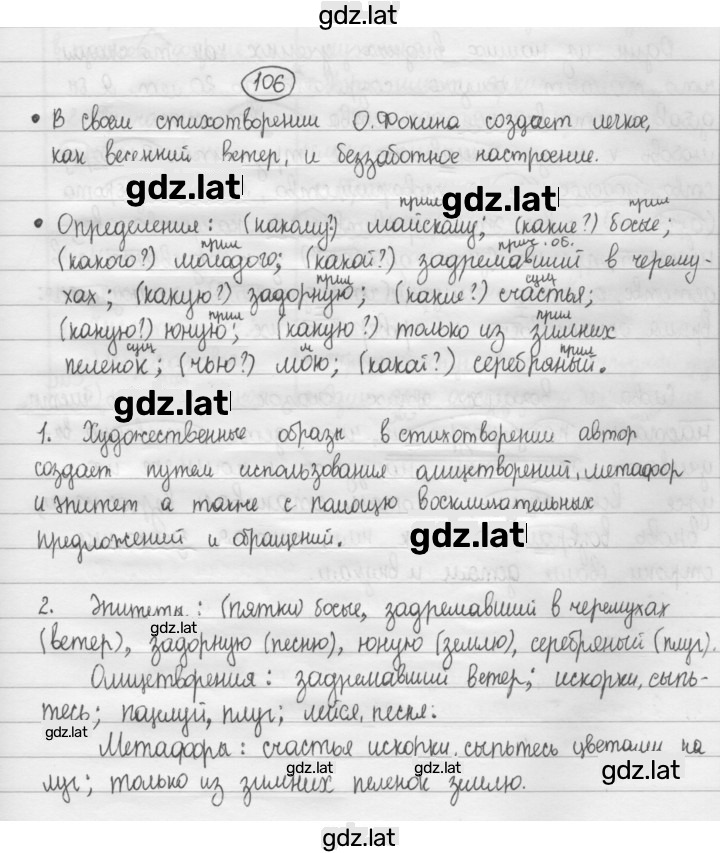 gdz.lat
106
• В своем стихотворении О.Фокина создает легкое,
как весенний ветер, и беззаботное настроение.
gdz.lat
gdz.lat
прил прил
• Определение: (какому?) майскому; (какие?) босые;
прил прич. об.
(какого?) молодого; (какой?) задремавший в черему-
прил сущ
хах; (какую?) задорную; (какие?) счастья;
прил прил
(какую?) юную; (какую?) только из зимних
сущ м прил
пеленок; (чью?) мою; (какой?) серебряный.
gdz.lat
1. Художественные образы в стихотворении автор
создает путем использования олицетворений, метафор
и эпитет а также с помощью восклицательных
предложений и обращений.
gdz.lat
2. Эпитеты: (пятки) босые, задремавший в черемухах
gdz.lat
(ветер), задорную (песню), юную (землю), серебряный (плуг).
Олицетворения: задремавший ветер; искорки, сыпь-
тесь; поцелуй, плуг; лейся, песня.
gdz.lat
Метафоры: счастья искорки сыпьтесь цветами на
gdz.lat
gdz.lat
gdz.lat
луг; только из зимних пеленок землю.
gdz.lat